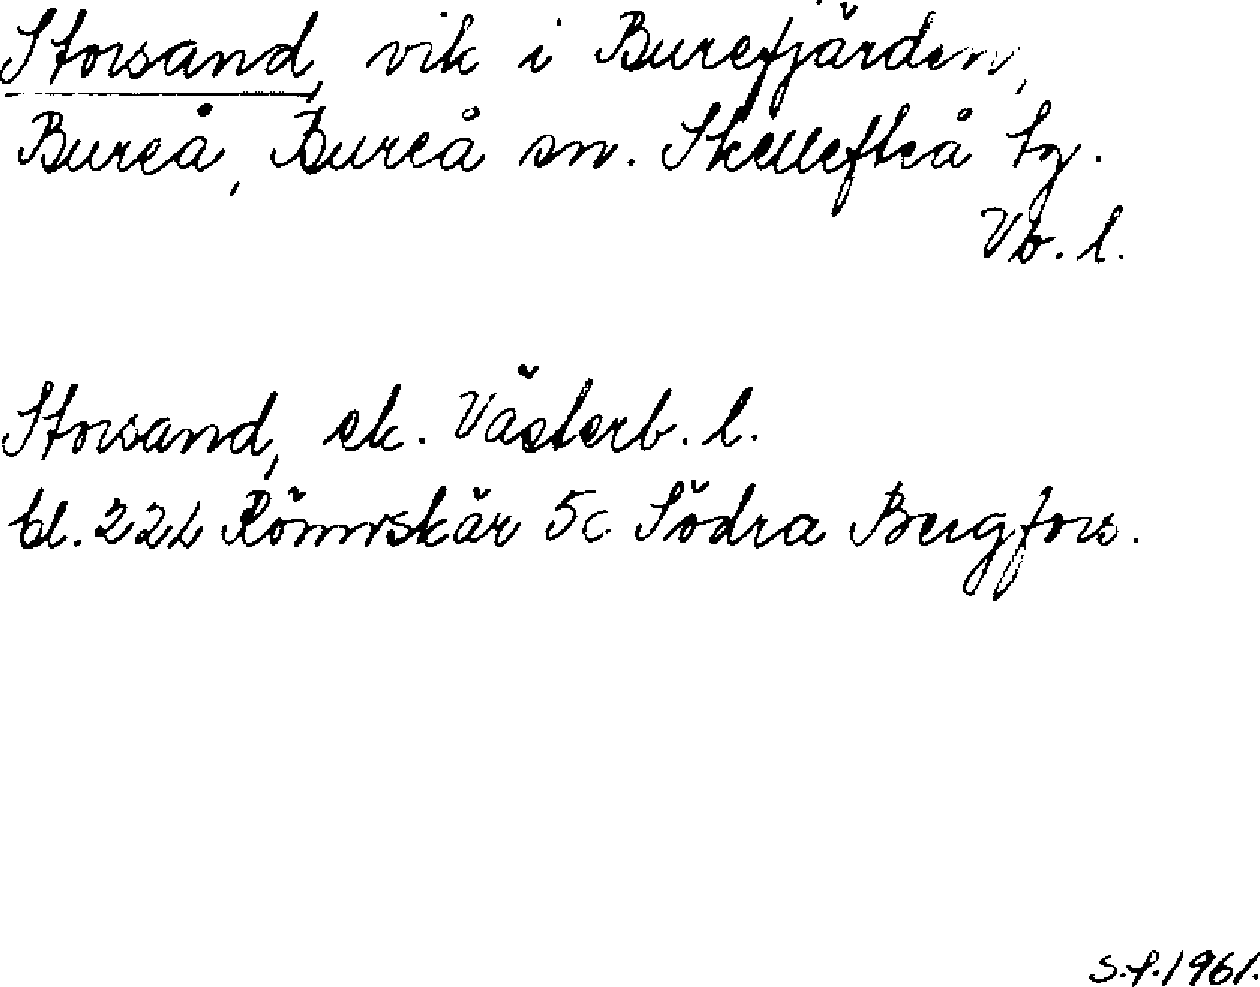 Storsand, vik i Burefjärden,
Bureå, Bureå sn. Skellefteå tg.
Vb. l.
Storsand, ek. Västerb. l.
bl. 22L Rönnskär 5c Södra Bergfors.
S.f. 1961.